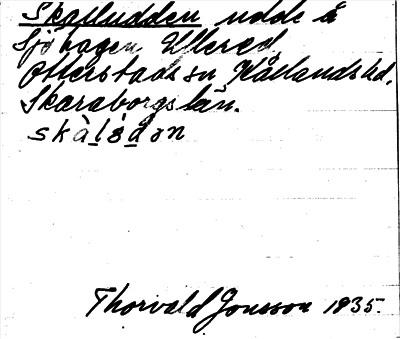 Skalludden udde å
Sjöhagen Ullered,
Otterstads sn, Kållands hd.
Skaraborgs län.
skàlúdən
Thorvald Jonsson 1935.